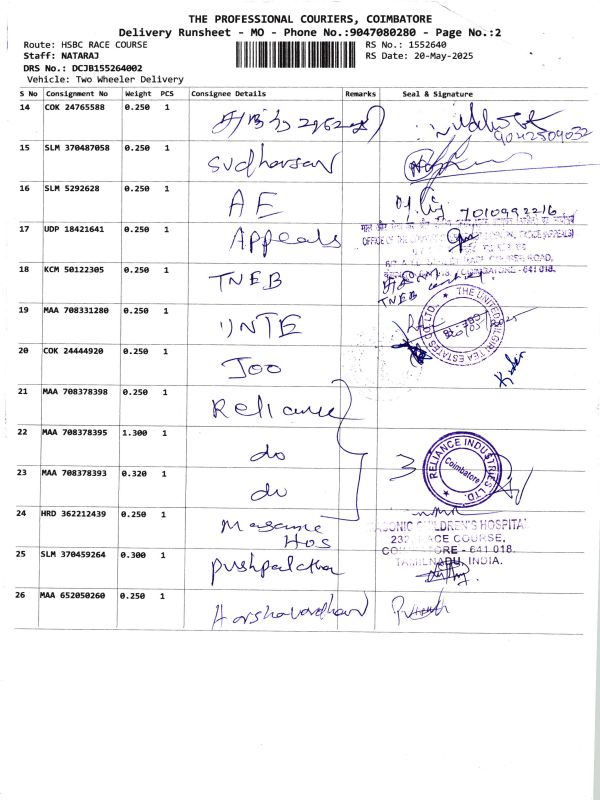 THE PROFESSIONAL COURIERS, COIMBATORE
Delivery Runsheet - MO - Phone No.:9047080280 - Page No.:2
Route: HSBC RACE COURSE
RS No.: 1552640
Staff: NATARAJ
RS Date: 20-May-2025
DRS No.: DCJB155264002
Vehicle: Two Wheeler Delivery
S No Consignment No Weight PCS Consignee Details Remarks Seal & Signature
14 COK 24765588 0.250 1
9042509032
15 SLM 370487058 0.250 1 Sudharsan
16 SLM 5292628 0.250 1 AE 7010992216
17 UDP 18421641 0.250 1 Appeals
COIMBATORE - 641 018.
18 KCM 50122305 0.250 1 TNEB
TNEB
19 MAA 708331280 0.250 1 UNTE
THE UNITED NILGIRI TEA ESTATES CO. LTD.
CBE-18
20 COK 24444920 0.250 1 Joo
21 MAA 708378398 0.250 1 Reliance
22 MAA 708378395 1.300 1 do
23 MAA 708378393 0.320 1 do
3
RELIANCE INDUSTRIES LTD.
Coimbatore
24 HRD 362212439 0.250 1 Masonic
Hos
MASONIC CHILDREN'S HOSPITAL
232, RACE COURSE,
COIMBATORE - 641 018.
TAMILNADU, INDIA.
25 SLM 370459264 0.300 1 pushpalatha
26 MAA 652050260 0.250 1 Harshavardhan